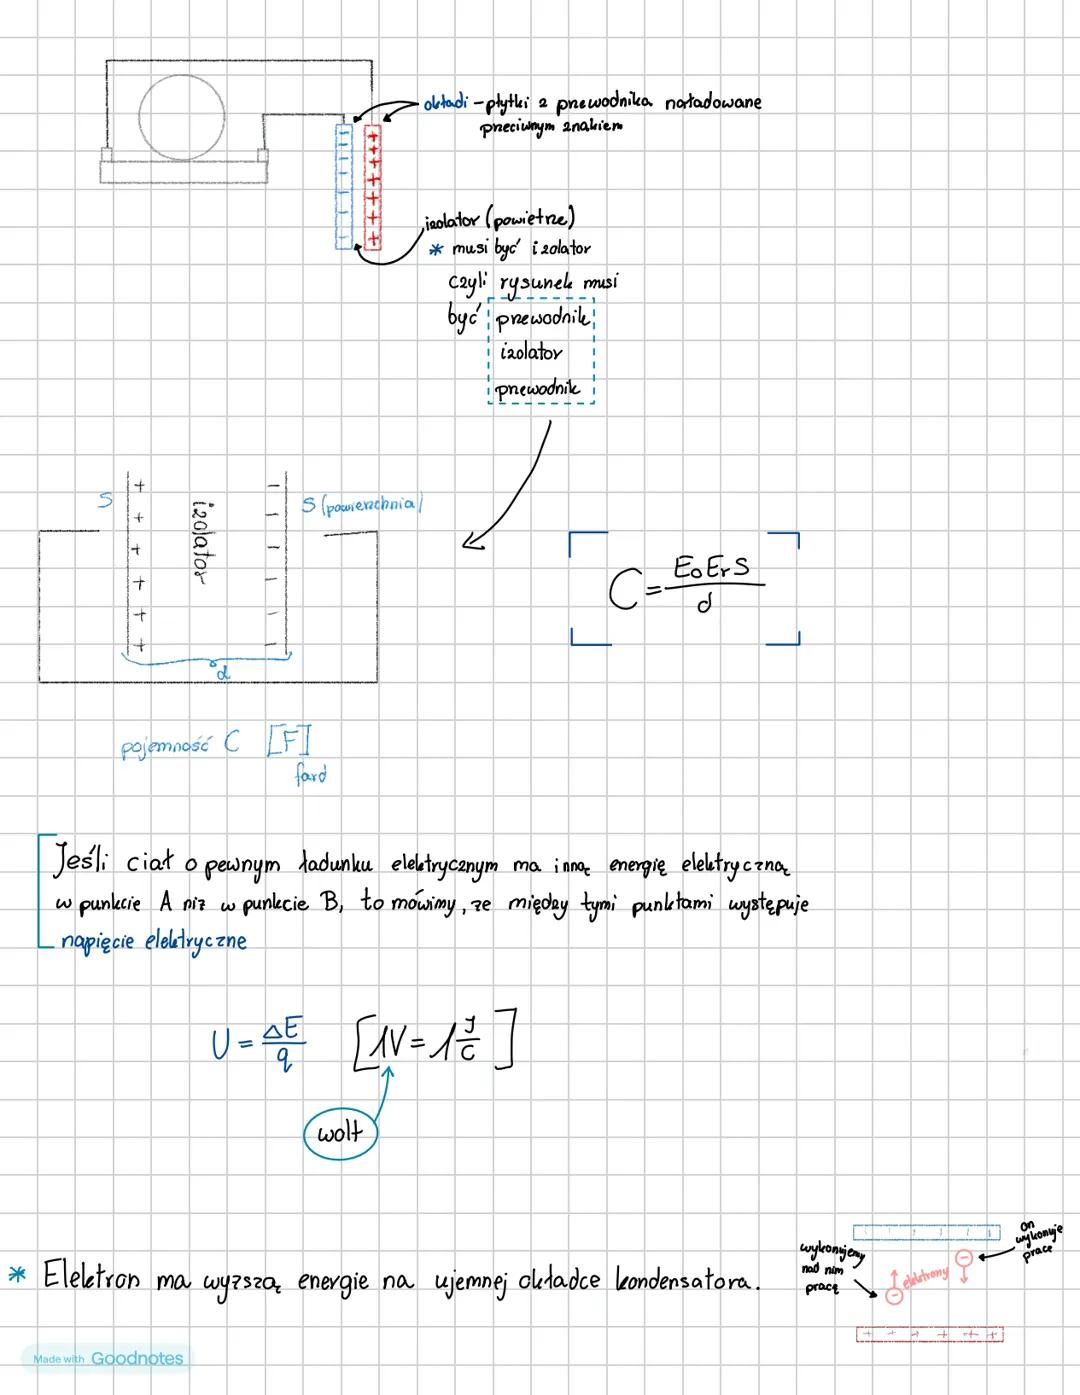 okładi - płytki z przewodnika naładowane
przeciwnym znakiem
izolator (powietrze)
* musi być izolator
czyli rysunek musi
być przewodnik
izolator
przewodnik
S
+ + + + + +
izolator
- - - - - -
S (powierzchnia)
d
C = E₀ErS / d
pojemność C [F]
fard
Jeśli ciał o pewnym ładunku elektrycznym ma inną energię elektryczną
w punkcie A niż w punkcie B, to mówimy, że między tymi punktami występuje
napięcie elektryczne
U = ΔE / q [1V = 1 J/C]
wolt
on
wykonuje
prace
wykonujemy
nad nim
pracę
elektrony
* Elektron ma wyższą energie na ujemnej okładce kondensatora.
+ + + + + +
Made with Goodnotes